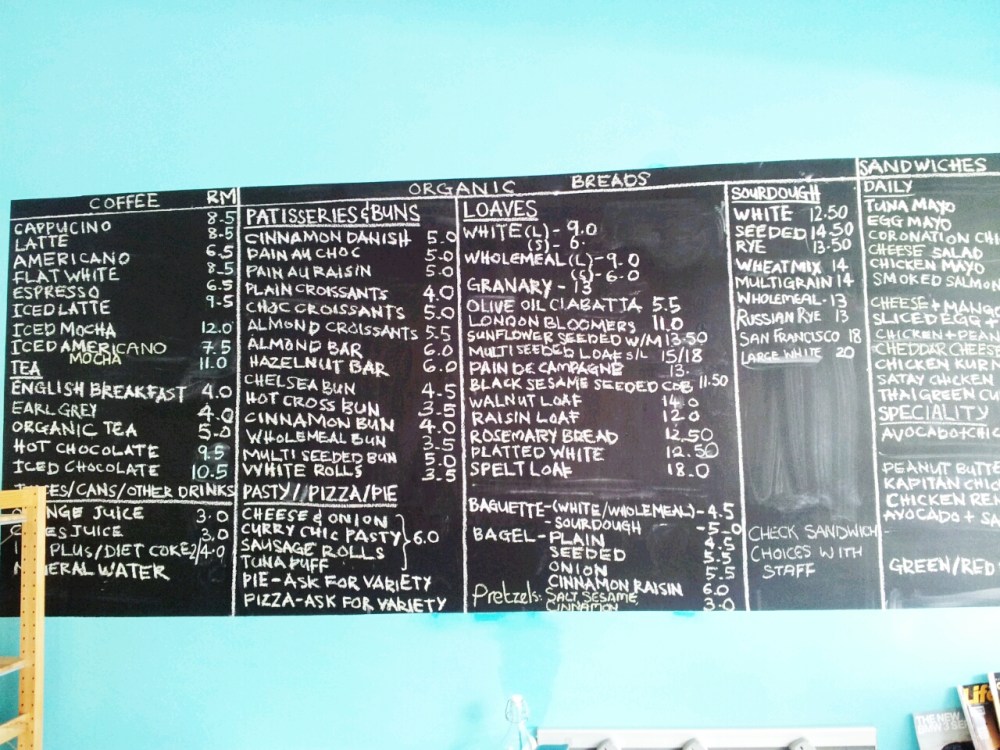 COFFEE RM
CAPPUCINO 8.5
LATTE 8.5
AMERICANO 6.5
FLAT WHITE 8.5
ESPRESSO 6.5
ICED LATTE 9.5
ICED MOCHA 12.0
ICED AMERICANO 7.5
MOCHA 11.0
TEA
ENGLISH BREAKFAST 4.0
EARL GREY 4.0
ORGANIC TEA 5.0
HOT CHOCOLATE 9.5
ICED CHOCOLATE 10.5
/CANS/OTHER DRINKS
JUICE 3.0
JUICE 3.0
PLUS/DIET COKE 2/4.0
WATER
ORGANIC BREADS
PATISSERIES & BUNS
CINNAMON DANISH 5.0
PAIN AU CHOC 5.0
PAIN AU RAISIN 5.0
PLAIN CROISSANTS 4.0
CHOC CROISSANTS 5.0
ALMOND CROISSANTS 5.5
ALMOND BAR 6.0
HAZELNUT BAR 6.0
CHELSEA BUN 4.5
HOT CROSS BUN 3.5
CINNAMON BUN 4.0
WHOLEMEAL BUN 3.5
MULTI SEEDED BUN 5.0
WHITE ROLLS 3.5
PASTY//PIZZA/PIE
CHEESE & ONION
CURRY CHIC PASTY 6.0
SAUSAGE ROLLS
TUNA PUFF
PIE-ASK FOR VARIETY
PIZZA-ASK FOR VARIETY
LOAVES
WHITE (L) - 9.0
(S) - 6.
WHOLEMEAL (L) - 9.0
(S) - 6.0
GRANARY - 13
OLIVE OIL CIABATTA 5.5
LONDON BLOOMERS 11.0
SUNFLOWER SEEDED W/M 13.50
MULTI SEEDED LOAF S/L 15/18
PAIN DE CAMPAGNE 13.
BLACK SESAME SEEDED COB 11.50
WALNUT LOAF 14.0
RAISIN LOAF 12.0
ROSEMARY BREAD 12.50
PLATTED WHITE 12.50
SPELT LOAF 18.0
BAGUETTE-(WHITE/WHOLEMEAL)-4.5
-SOURDOUGH -5.0
BAGEL-PLAIN 4.5
SEEDED 5.5
ONION 5.5
CINNAMON RAISIN 6.0
Pretzels: SALT, SESAME,
CINNAMON 3.0
SOURDOUGH
WHITE 12.50
SEEDED 14.50
RYE 13.50
WHEATMIX 14
MULTIGRAIN 14
WHOLEMEAL-13
RUSSIAN RYE 13
SAN FRANCISCO 18
LARGE WHITE 20
CHECK SANDWICH
CHOICES WITH
STAFF
SANDWICHES
DAILY
TUNA MAYO
EGG MAYO
CORONATION CHI
CHEESE SALAD
CHICKEN MAYO
SMOKED SALMON
CHEESE + MANGO
SLICED EGG +
CHICKEN + PEAN
CHEDDAR CHEESE
CHICKEN KURM
SATAY CHICKEN
THAI GREEN CU
SPECIALITY
AVOCADO + CHIC
PEANUT BUTTE
KAPITAN CHIC
CHICKEN REN
AVOCADO + SA
GREEN/RED
Life
THE NEW